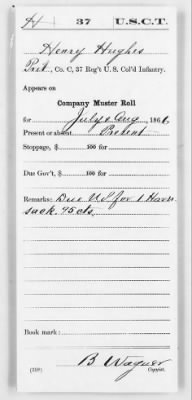 H 37 U.S.C.T.
Henry Hughes
Pvt., Co. C, 37 Reg't U. S. Col'd Infantry.
Appears on
Company Muster Roll
for July & Aug, 1866
Present or absent Present
Stoppage, $ 100 for
Due Gov't, $ 100 for
Remarks: Due U S for 1 Haver
sack. 45 cts.
Book mark:
B Wagner
(358) Copyist.